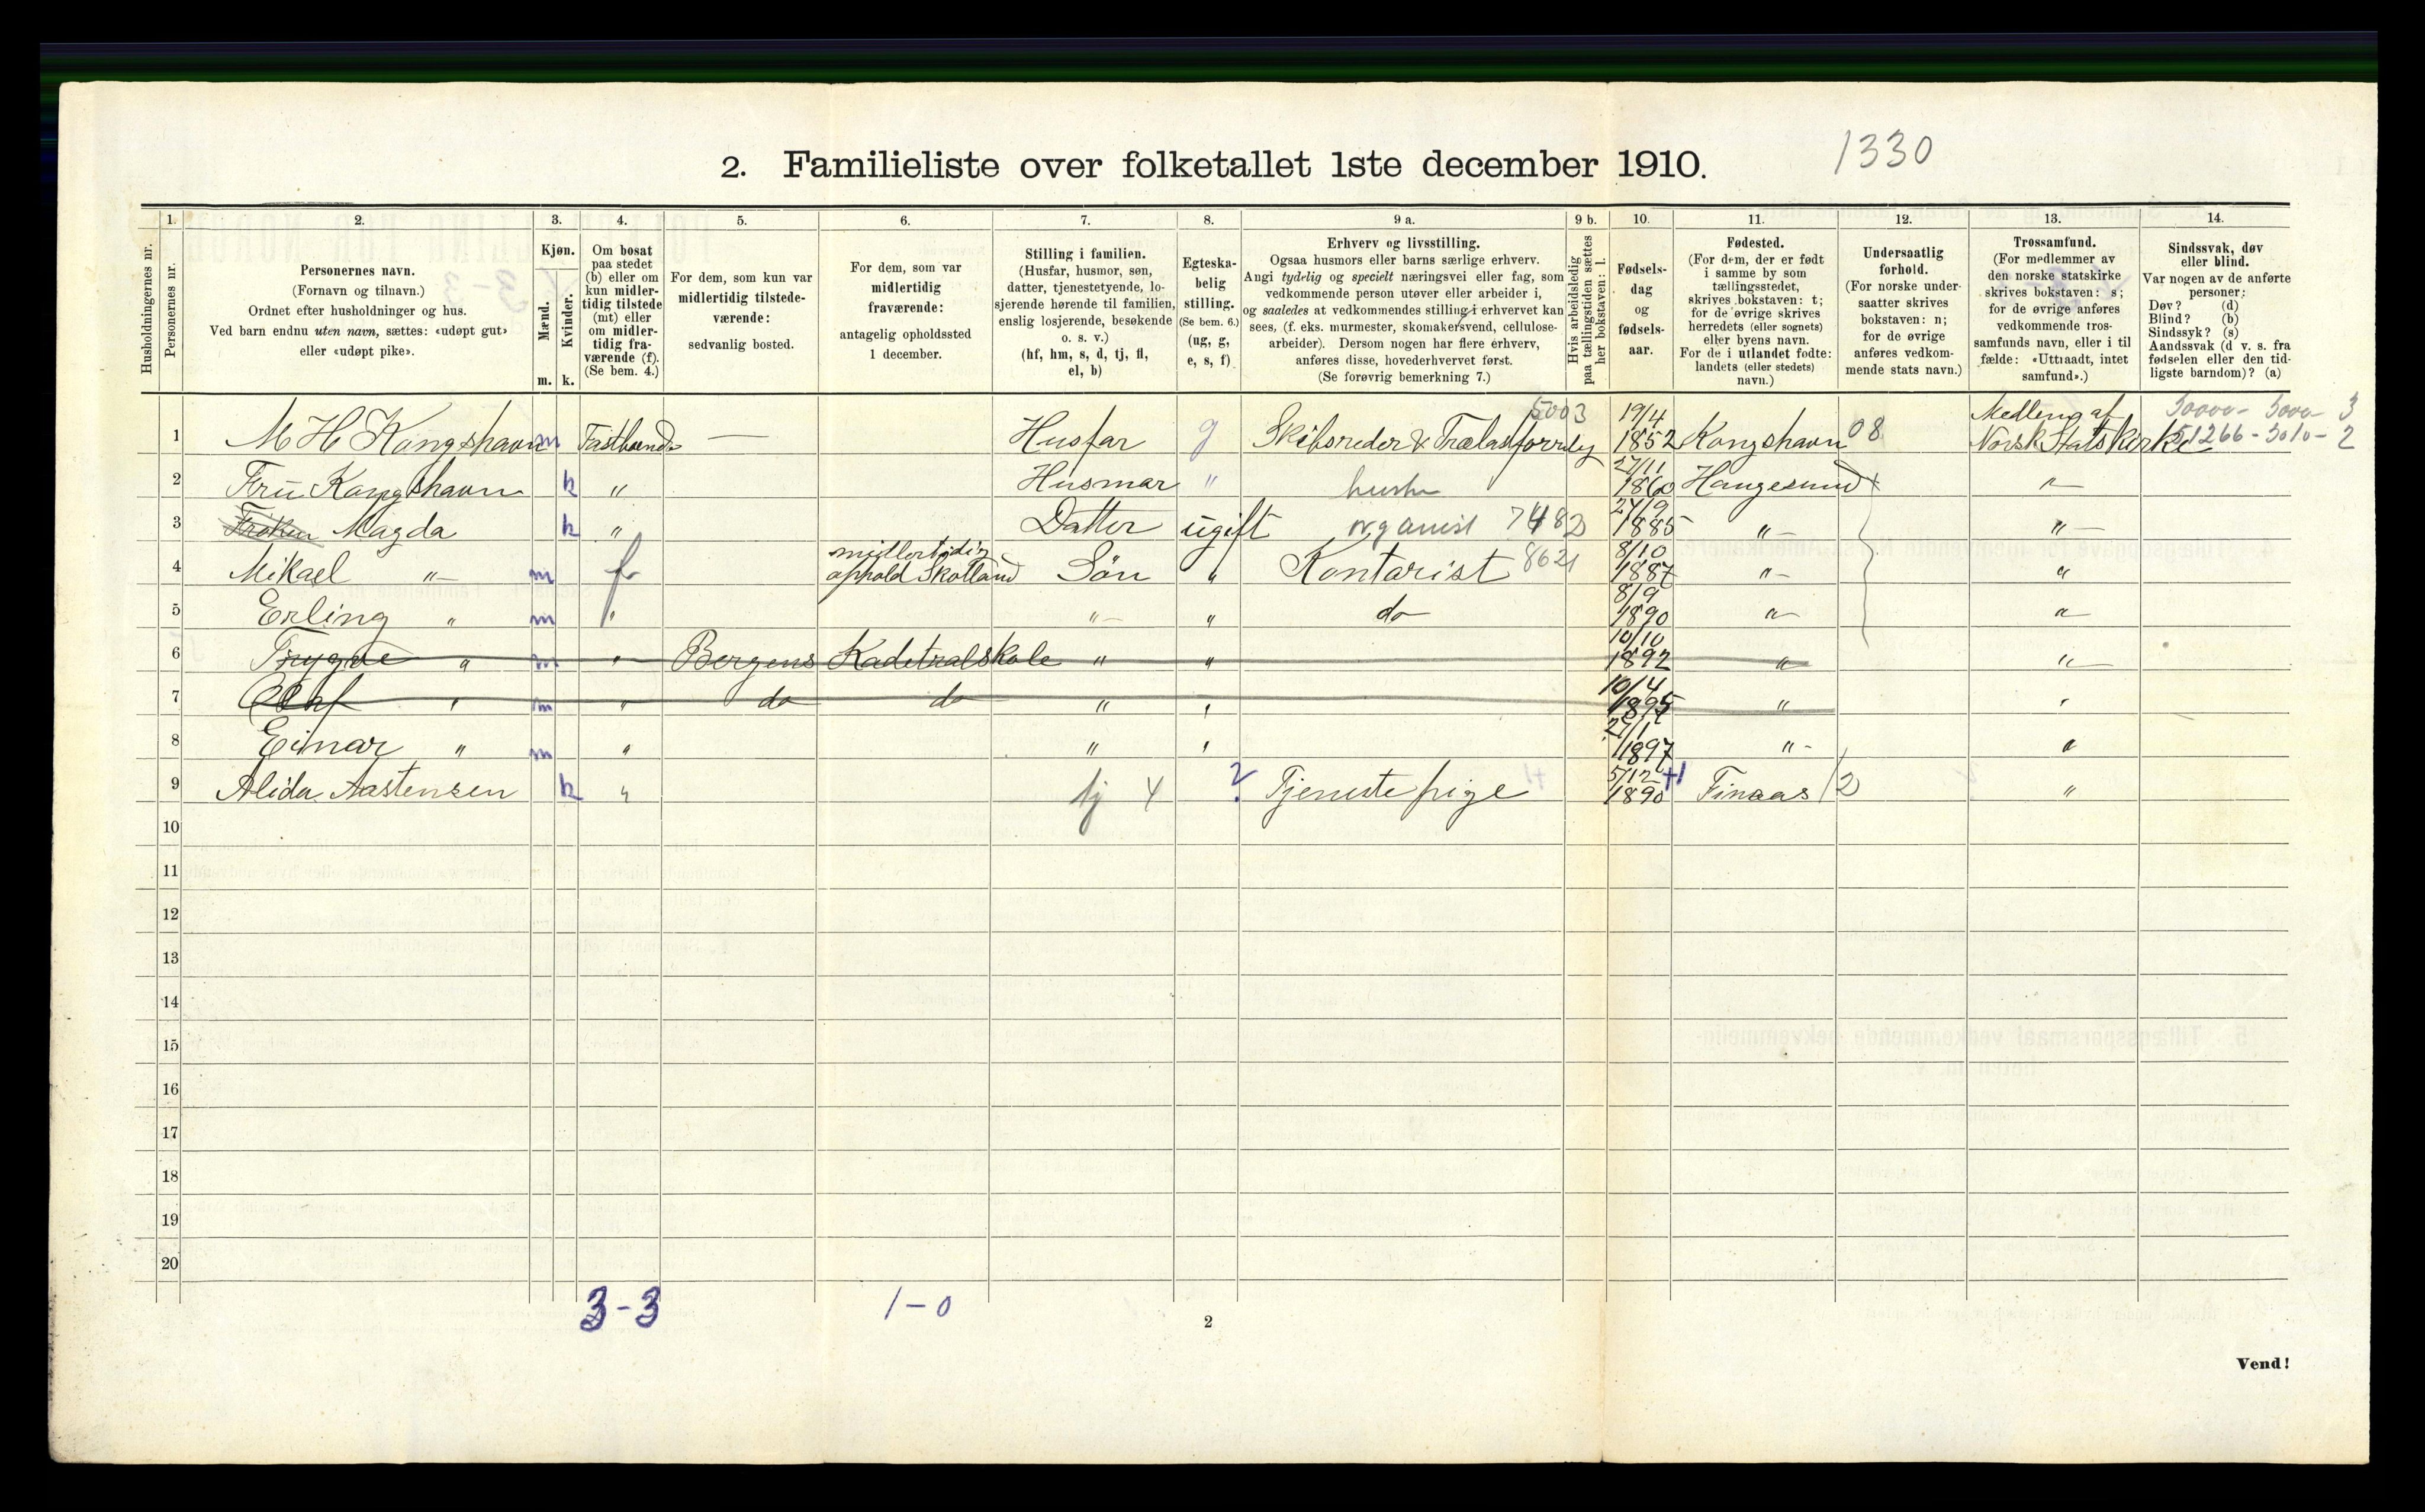 2. Familieliste over folketallet 1ste december 1910.
1330
Husholdningernes nr.
1. Personernes nr.
2.
Personernes navn.
(Fornavn og tilnavn.)
Ordnet efter husholdninger og hus.
Ved barn endnu uten navn, sættes: «udøpt gut»
eller «udøpt pike».
3.
Kjøn.
Mænd. Kvinder.
m. k.
4.
Om bosat
paa stedet
(b) eller om
kun midler-
tidig tilstede
(mt) eller
om midler-
tidig fra-
værende (f).
(Se bem. 4.)
5.
For dem, som kun var
midlertidig tilstede-
værende:
sedvanlig bosted.
6.
For dem, som var
midlertidig
fraværende:
antagelig opholdssted
1 december.
7.
Stilling i familien.
(Husfar, husmor, søn,
datter, tjenestetyende, lo-
sjerende hørende til familien,
enslig losjerende, besøkende
o. s. v.)
(hf, hm, s, d, tj, fl,
el, b)
8.
Egteska-
belig
stilling.
(Se bem. 6.)
(ug, g,
e, s, f)
9 a.
Erhverv og livsstilling.
Ogsaa husmors eller barns særlige erhverv.
Angi tydelig og specielt næringsvei eller fag, som
vedkommende person utøver eller arbeider i,
og saaledes at vedkommendes stilling i erhvervet kan
sees, (f. eks. murmester, skomakersvend, cellulose-
arbeider). Dersom nogen har flere erhverv,
anføres disse, hovederhvervet først.
(Se forøvrig bemerkning 7.)
9 b.
Hvis arbeidsledig
paa tællingstiden sættes
her bokstaven: l.
10.
Fødsels-
dag
og
fødsels-
aar.
11.
Fødested.
(For dem, der er født
i samme by som
tællingsstedet,
skrives bokstaven: t;
for de øvrige skrives
herredets (eller sognets)
eller byens navn.
For de i utlandet fødte:
landets (eller stedets)
navn.)
12.
Undersaatlig
forhold.
(For norske under-
saatter skrives
bokstaven: n;
for de øvrige
anføres vedkom-
mende stats navn.)
13.
Trossamfund.
(For medlemmer av
den norske statskirke
skrives bokstaven: s;
for de øvrige anføres
vedkommende tros-
samfunds navn, eller i til-
fælde: «Uttraadt, intet
samfund».)
14.
Sindssvak, døv
eller blind.
Var nogen av de anførte
personer:
Døv? (d)
Blind? (b)
Sindssyk? (s)
Aandssvak (d v. s. fra
fødselen eller den tid-
ligste barndom)? (a)
1 M H Kongshavn m Fastboende — Husfar g Skibsreder & Trælastforretn 5003 19/4 1852 Kongshavn 08 Medlem af Norsk Statskirke 50000 - 5000 - 3
51266 - 5010 - 2
2 Fru Kongshavn k " Husmor " hustr 27/11 1860 Haugesund x "
3 Frøken Magda k " Datter ugift organist 7482 27/9 1885 " "
4 Mikael " m f midlertidig ophold Skotland Søn " Kontorist 8621 8/10 1887 " "
5 Erling " m " " " do 8/9 1890 " "
6 Trygve " m " Bergens Kadetralskole " " 10/10 1892 " "
7 Olaf " m " do do " " 10/4 1895 " "
8 Einar " m " " " 27/1 1897 " "
9 Alida Aastensen k " tj 4 ? Tjenestepige 5/12 1890 +1 Finaas 12 "
10
11
12
13
14
15
16
17
18
19
20
3-3 1-0
2
Vend!